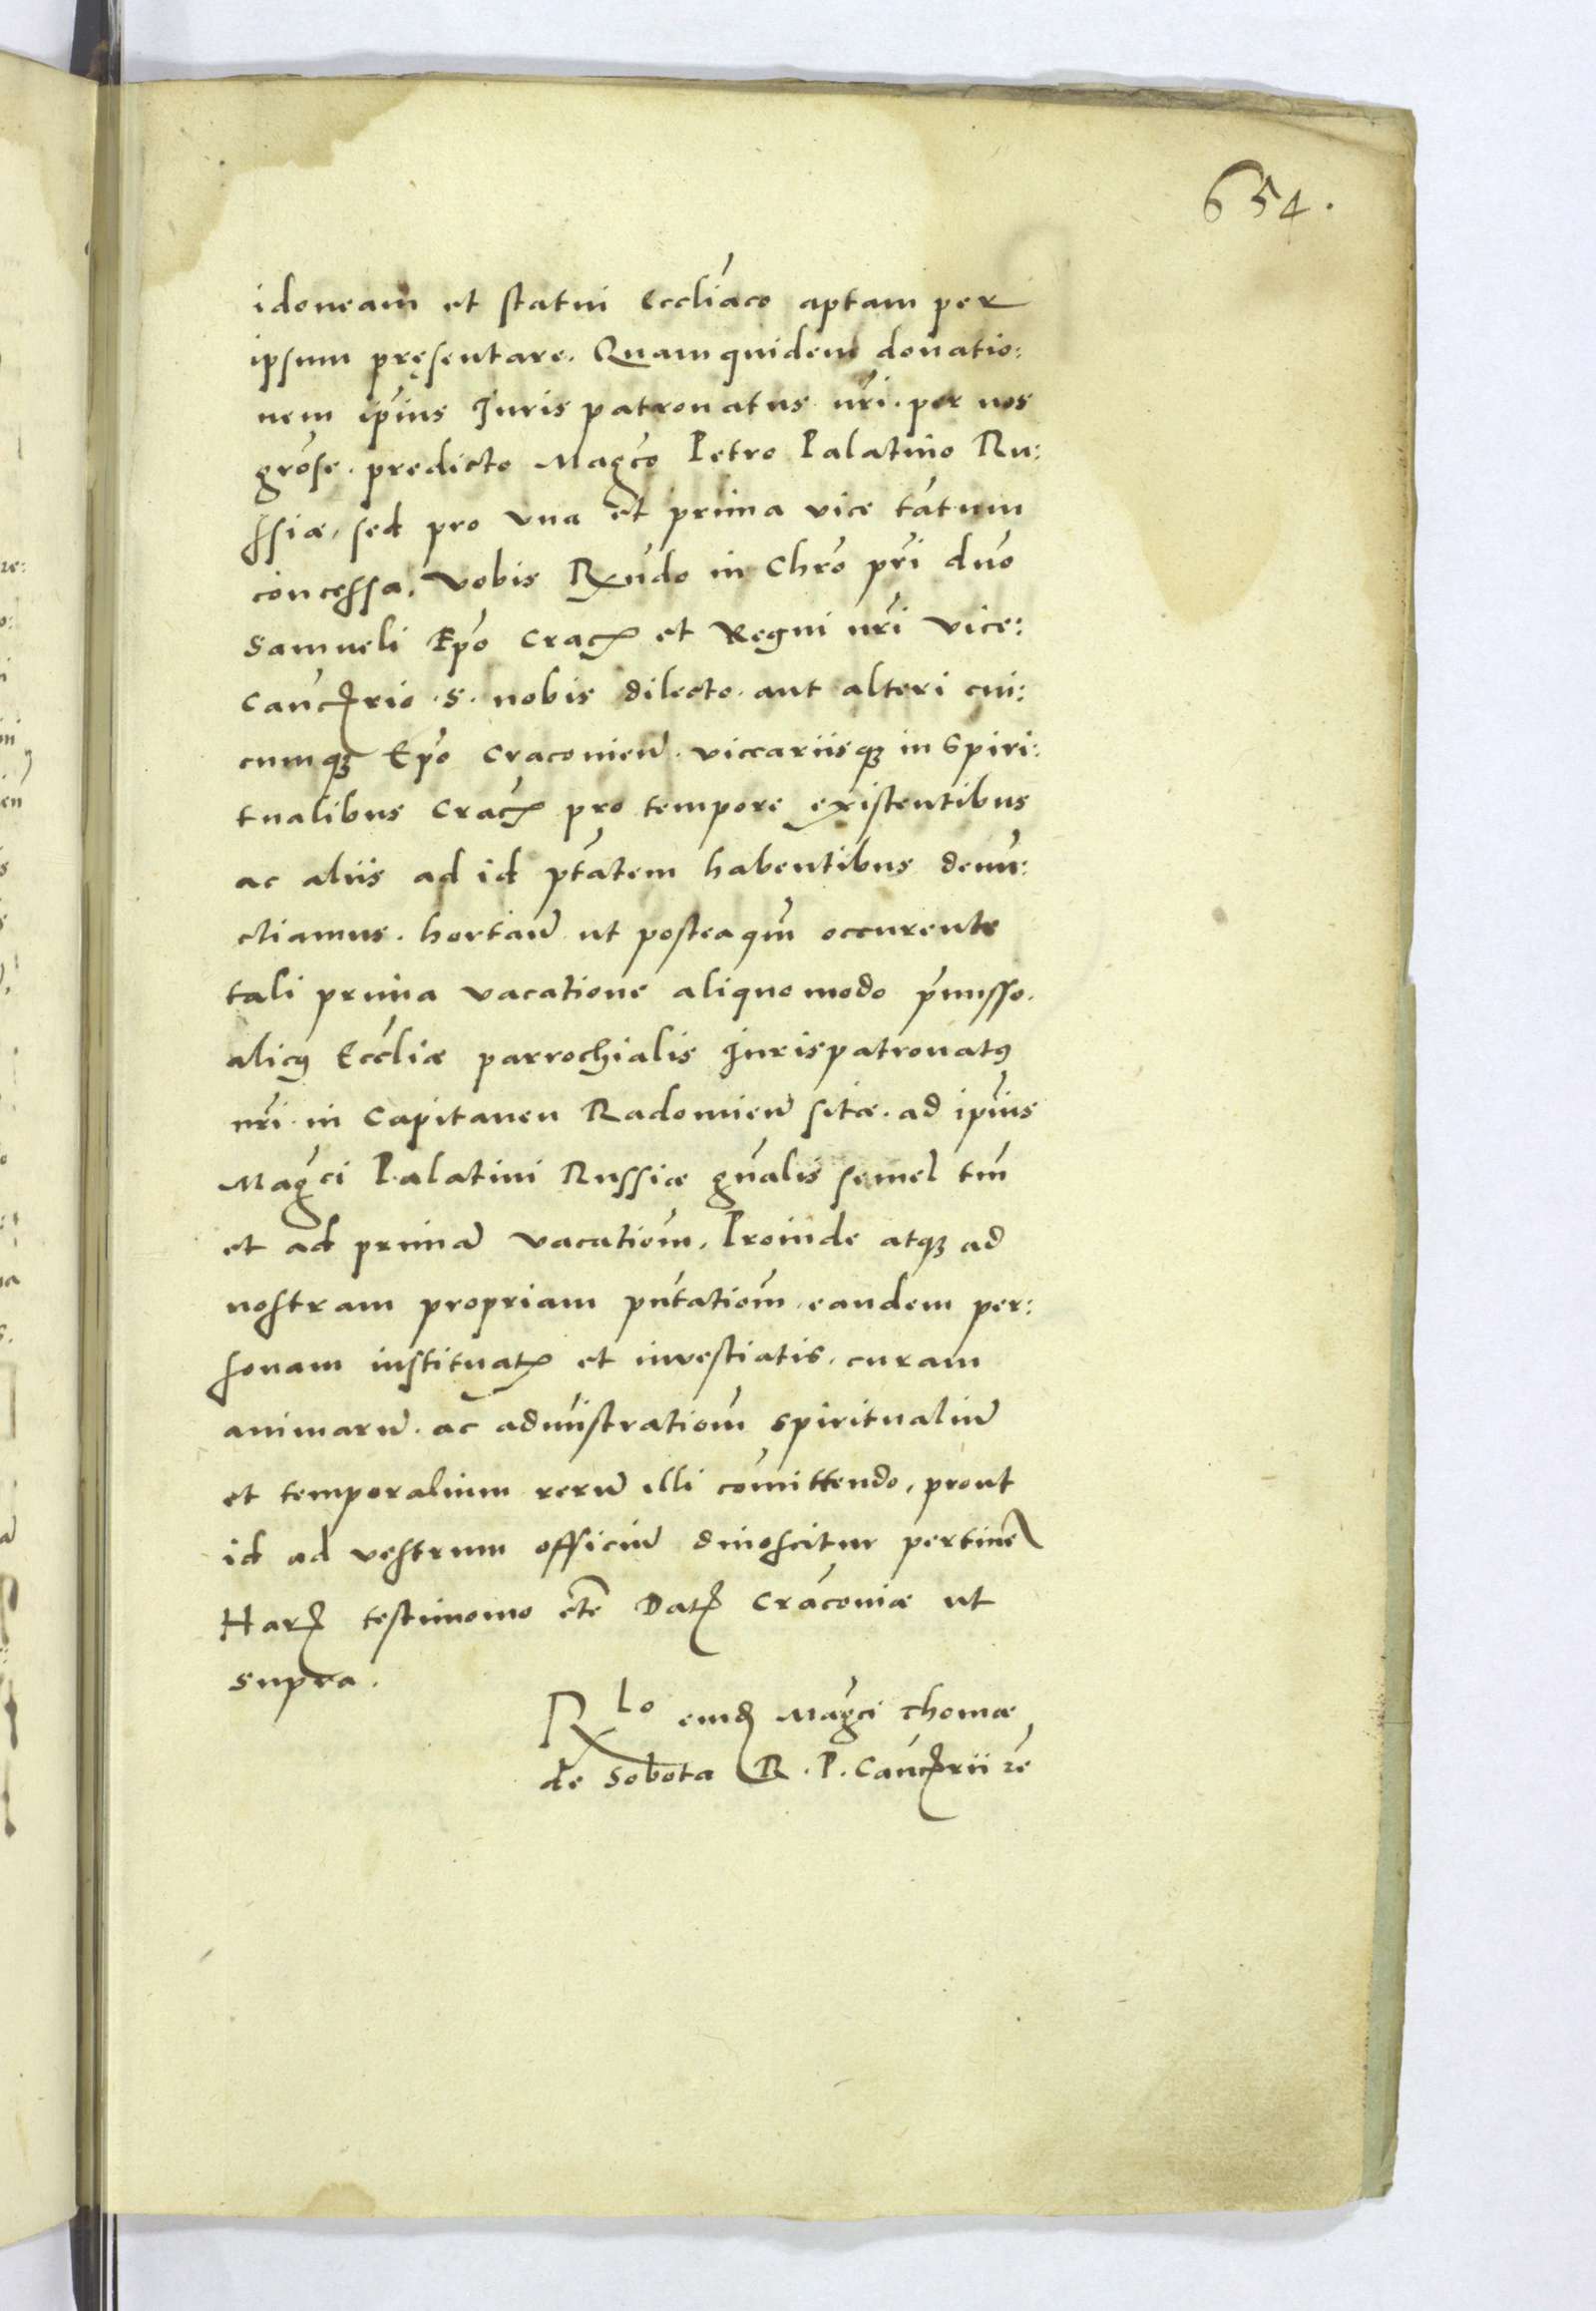 654.
idoneam et statui Eccliaco aptam per
ipsum pręsentare. Quam quidem donatio:
nem ip̃ius Juris patronatus nr̃i. per nos
grõse. predicto Mag̃co Petro Palatino Ru:
ssiæ, sed pro vna et prima vice tãtum
concessa, Vobis Rx̃ndo in Chrõ pr̃i dño
Samueli Ep̃o Crac̃ et Regni nr̃i Vice:
Canc̃rio. S. nobis dilecto. aut alteri cui:
cumqꝫ Ep̃o Cracovieñ. viccariisqꝫ in Spiri:
tualibus Crac̃ pro tempore existentibus
ac aliis ad id ptãtem habentibus denun:
ctiamus. hortañ ut posteaqm̃ occurente
tali prima vacatione aliquo modo p̃misso.
alicꝰ Eccliæ parrochialis Jurispatronatꝰ
nr̃i in Capitaneu Radomieñ sitæ. ad ip̃ius
Mag̃ci Palatini Russiæ gñalis semel tm̃
et ad primã vacatiom̃, Proinde atqꝫ ad
nostram propriam pñtatiom̃. eandem per:
sonam instituatꝭ et investiatis. curam
animarũ. ac admĩstratiom̃ spiritualiũ
et temporalium rerũ illi cõmittendo, prout
id ad vestrum officiũ dinoscitur pertineꝛ̃
Harꝝ testimonio etc̃ Datꝭ Cracoviæ ut
supra.
Rlo eiusdꝫ Mag̃ci Thomæ
de Sobota R. P. Canc̃rii ꝛc̃